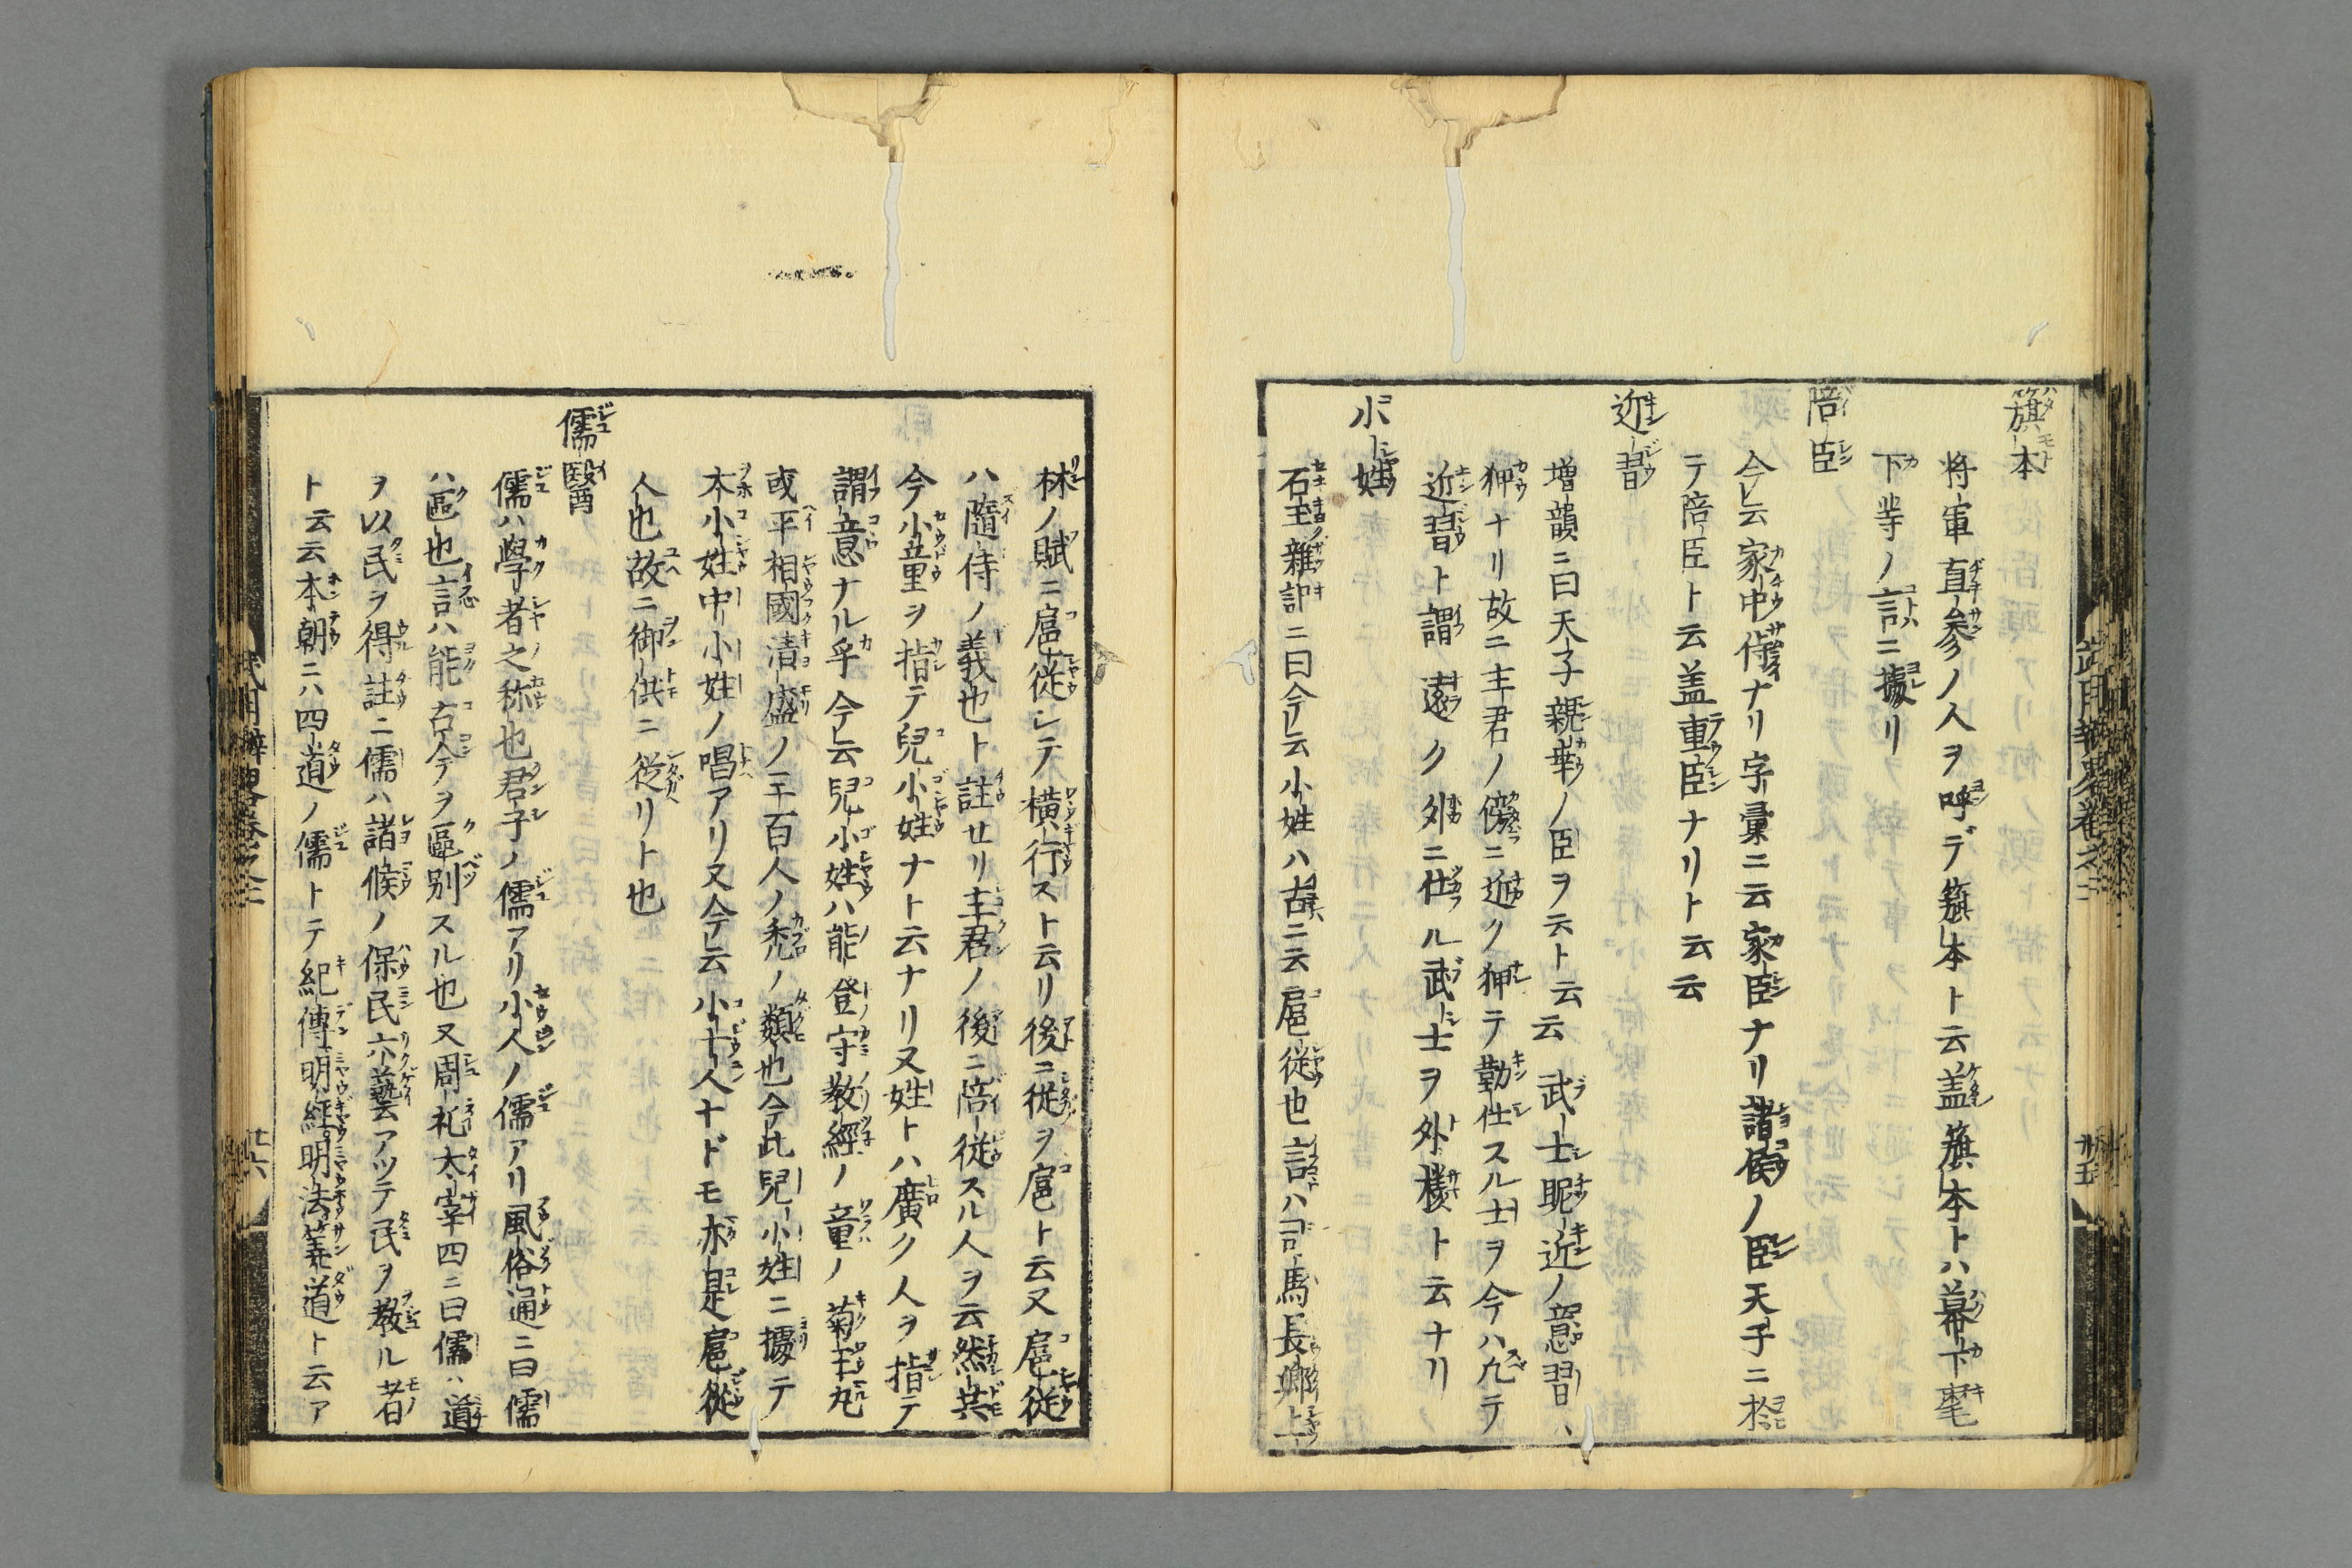 旗本
将軍直参ノ人ヲ呼デ籏本ト云盖籏本トハ幕下麾
下等ノ言ニ據リ
陪臣
今云家中侍ナリ字彙ニ云家臣ナリ諸侯ノ臣天子ニ於
テ陪臣ト云盖重臣ナリト云云
近習
増韻ニ曰天子親幸ノ臣ヲ云ト云云武士昵近ノ意習ハ
狎ナリ故ニ主君ノ傍ニ近ク狎テ勤仕スル士ヲ今ハ凢テ
近習ト謂遠ク外ニ仕ル武士ヲ外様ト云ナリ
小姓
石圭雑記ニ曰今云小姓ハ古ニ云扈従也言ハ司馬長卿上
林ノ賦ニ扈従シテ横行スト云リ後ニ従ヲ扈ト云又扈従
ハ隨侍ノ義也ト註せリ主君ノ後ニ陪従スル人ヲ云然共
今小童ヲ指テ兒小姓ナト云ナリ又姓トハ廣ク人ヲ指テ
謂意ナル乎今云兒小姓ハ能登守教經ノ童ノ菊王丸
或平相國清盛ノ三百人ノ禿ノ類也今此兒小姓ニ據テ
大小姓中小姓ノ唱アリ又今云小十人ナドモ亦是扈從
人也故ニ御供ニ従リト也
儒醫
儒ハ學者之称也君子ノ儒アリ小人ノ儒アリ風俗通ニ曰儒
ハ區也言ハ能古今ヲ區別スル也又周礼太宰四ニ曰儒ハ道
ヲ以民ヲ得註ニ儒ハ諸候ノ保民六藝アツテ民ヲ教ル者
ト云云本朝ニハ四道ノ儒トテ紀傳明經明法筭道ト云ア
武用辨畧巻之二
廿五
武用辨畧巻之二
廿六